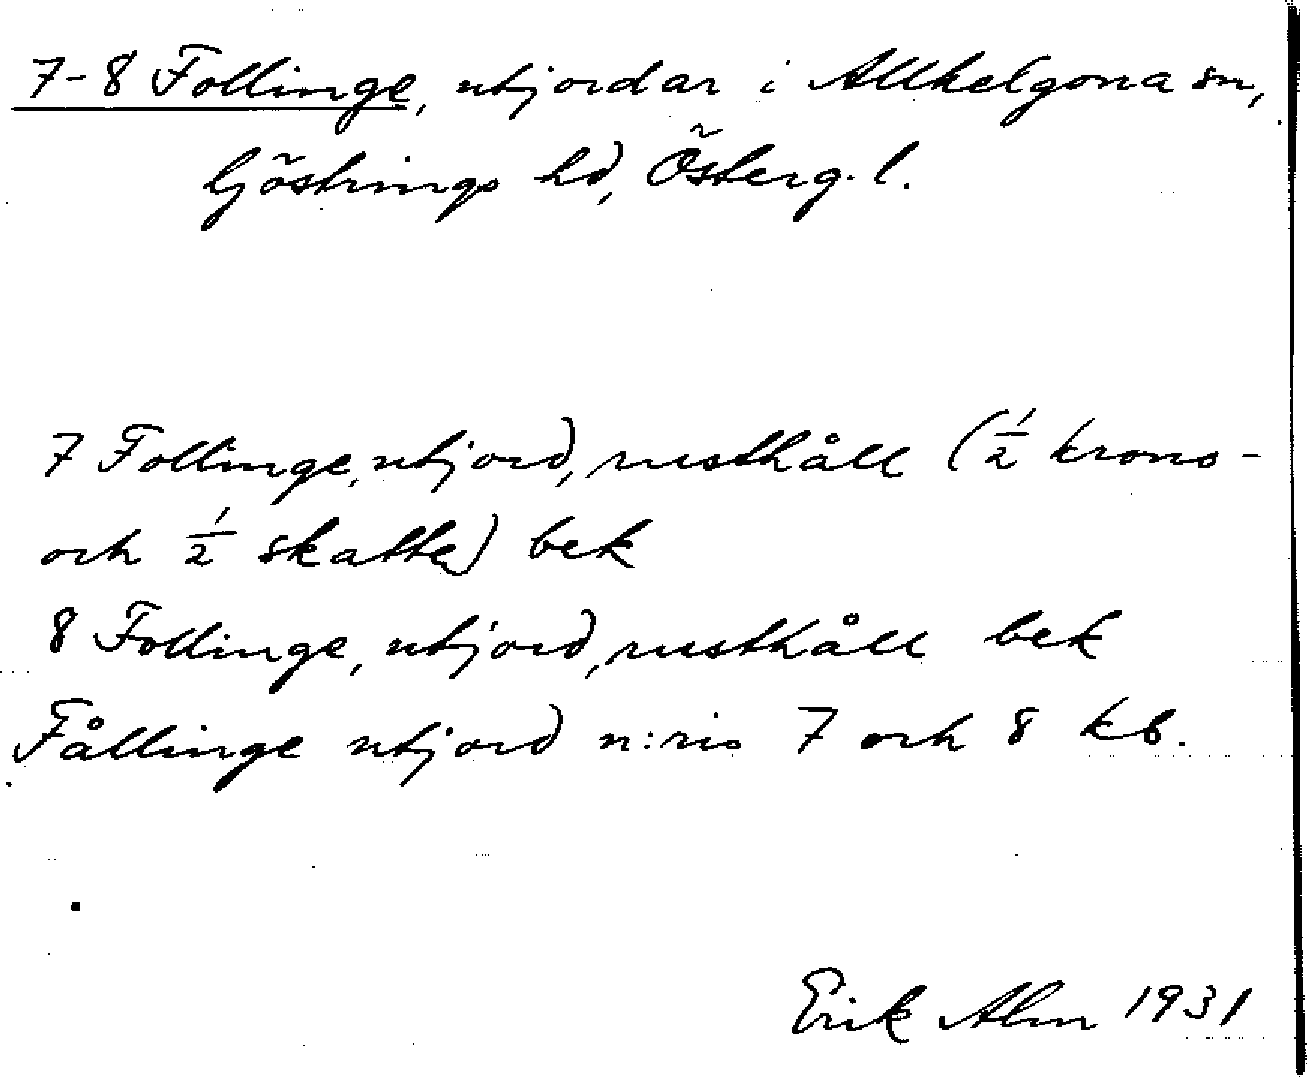 7-8 Follinge, utjordar i Allhelgona sn,
Göstrings hd, Österg. l.
7 Follinge, utjord, rusthåll (1/2 krono-
och 1/2 skatte) bek
8 Follinge, utjord, rusthåll bek
Fållinge utjord n:ris 7 och 8 kb.
Erik Alm 1931